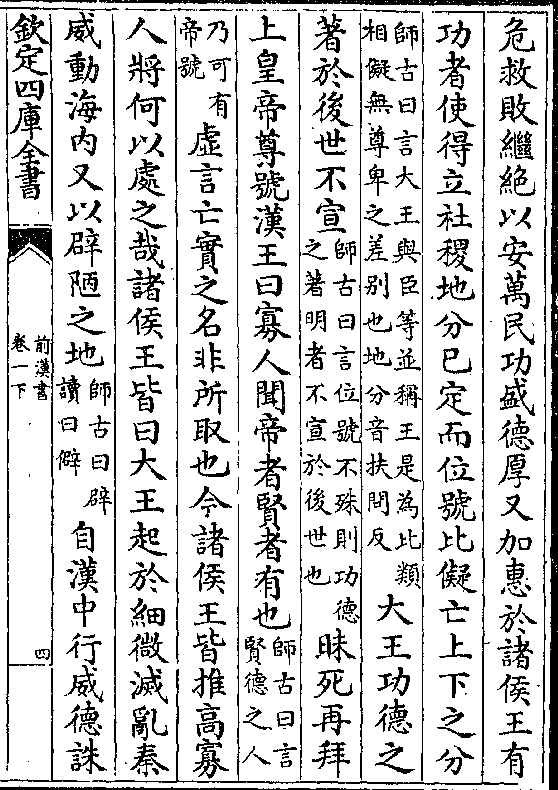 危救敗繼絶以安萬民功盛德厚又加惠於諸侯王有
功者使得立社稷地分已定而位號比儗亡上下之分
師古曰言大王與臣等並稱王是為比類
相儗無尊卑之差别也地分音扶問反
大王功德之
著於後世不宣
師古曰言位號不殊則功德
之著明者不宣於後世也
昧死再拜
上皇帝尊號漢王曰寡人聞帝者賢者有也
師古曰言
賢德之人
乃可有
帝號
虚言亡實之名非所取也今諸侯王皆推高寡
人將何以處之哉諸侯王皆曰大王起於細微滅亂秦
威動海内又以辟陋之地
師古曰辟
讀曰僻
自漢中行威德誅
欽定四庫全書
前漢書
卷一下
四